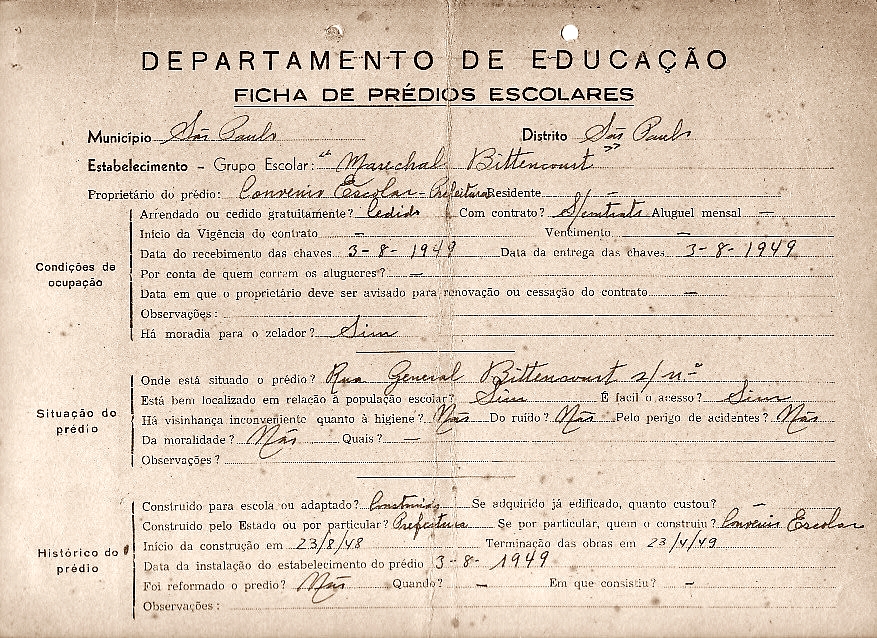 DEPARTAMENTO DE EDUCAÇÃO
FICHA DE PRÉDIOS ESCOLARES
Município São Paulo Distrito São Paulo
Estabelecimento - Grupo Escolar: "Marechal Bittencourt"
Proprietário do prédio: Convenio Escolar - Prefeitura Residente -
Condições de ocupação
Arrendado ou cedido gratuitamente? Cedido Com contrato? S/contrato Aluguel mensal -
Início da Vigência do contrato - Vencimento -
Data do recebimento das chaves 3-8-1949 Data da entrega das chaves 3-8-1949
Por conta de quem corram os alugueres? -
Data em que o proprietário deve ser avisado para renovação ou cessação do contrato -
Observações:
Há moradia para o zelador? Sim
Situação do prédio
Onde está situado o prédio? Rua General Bittencourt s/n.º
Está bem localizado em relação à população escolar? Sim É facil o acesso? Sim
Há visinhança inconveniente quanto à higiene? Não Do ruído? Não Pelo perigo de acidentes? Não
Da moralidade? Não Quais? -
Observações?
Histórico do prédio
Construido para escola ou adaptado? Construido Se adquirido já edificado, quanto custou? -
Construido pelo Estado ou por particular? Prefeitura Se por particular, quem o construiu? Convenio Escolar
Início da construção em 23/8/48 Terminação das obras em 23/4/49
Data da instalação do estabelecimento do prédio 3-8-1949
Foi reformado o predio? Não Quando? - Em que consistiu? -
Observações: